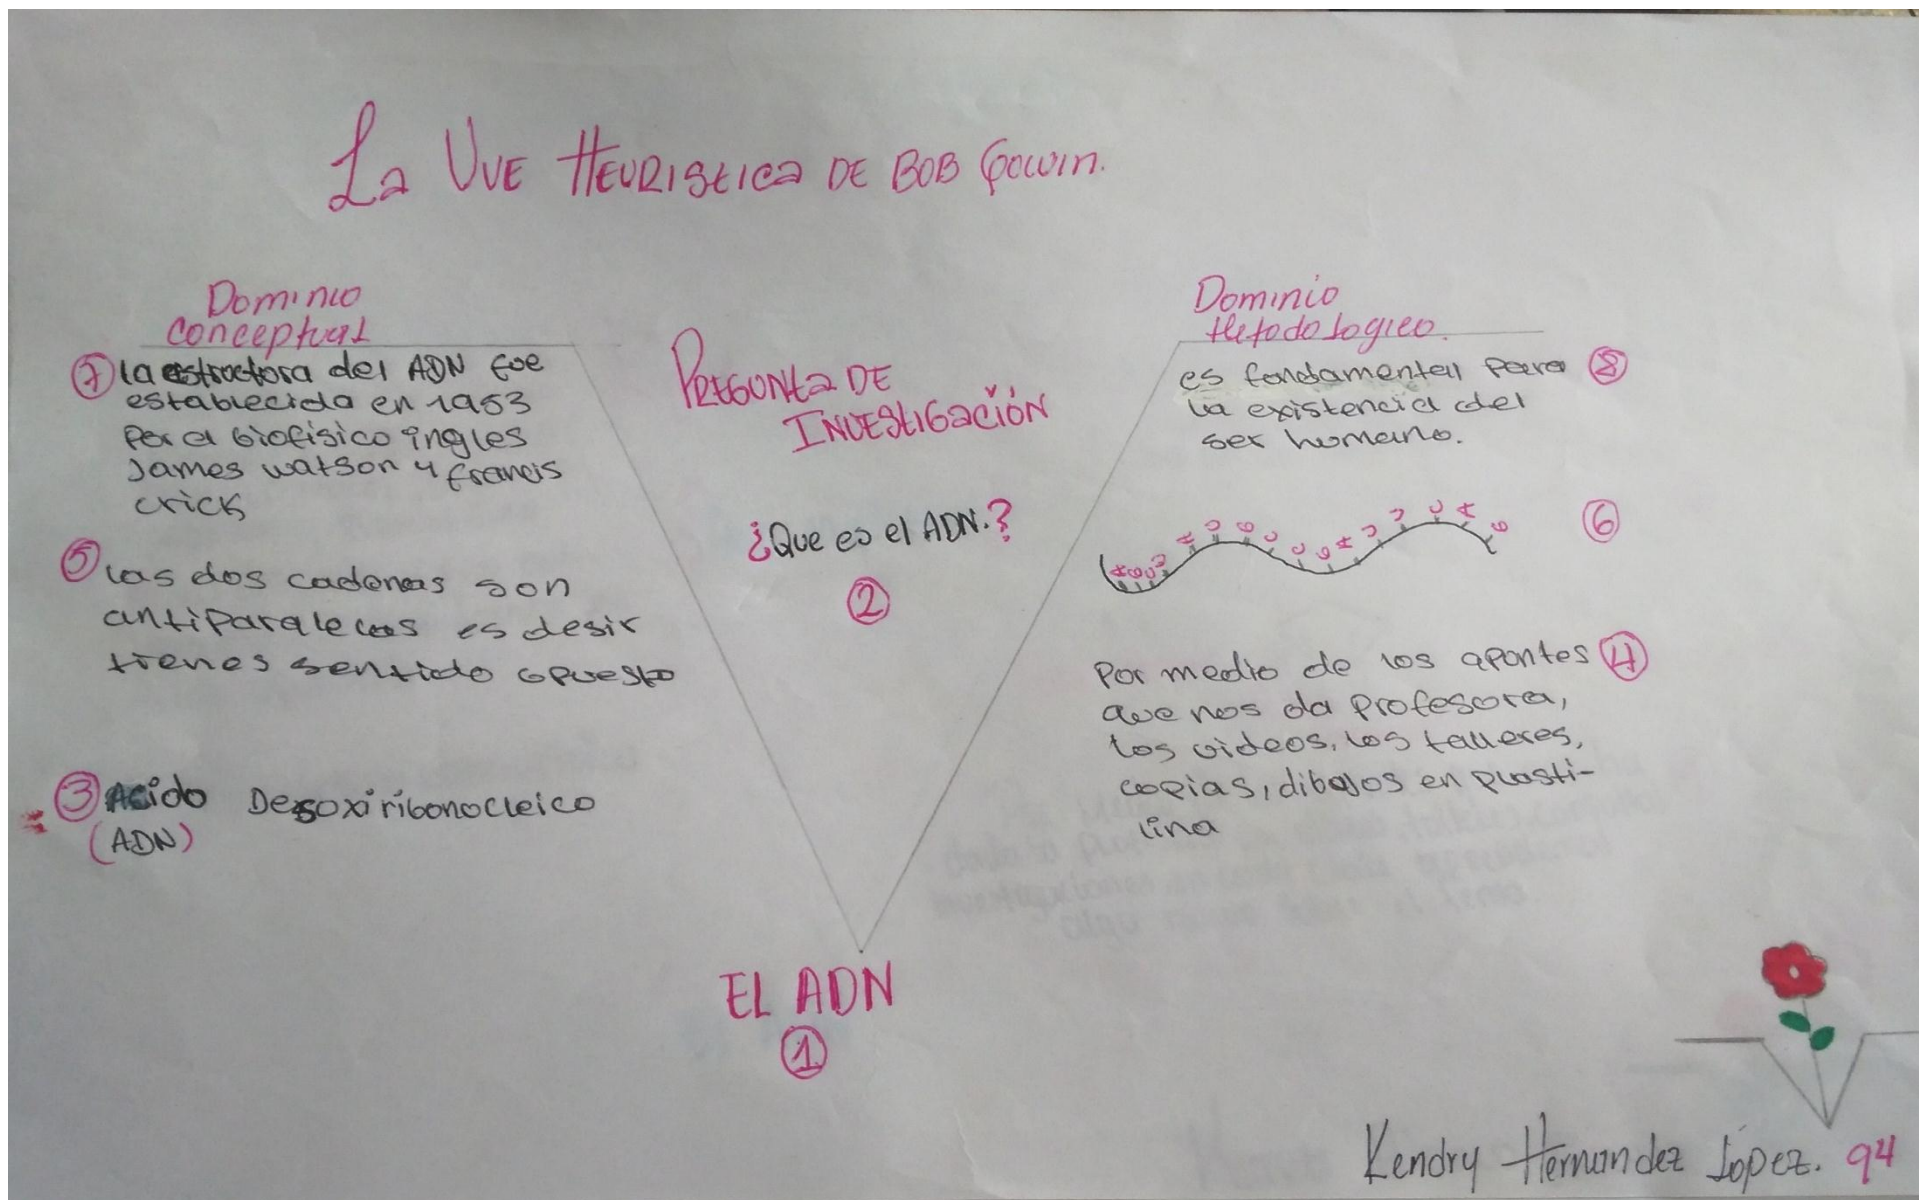 La UVE HEURIStica DE BOB Gowin.
Dominio
conceptual
7 la estructura del ADN fue
establecida en 1953
Por el biofisico ingles
James watson y francis
crick
5 las dos cadenas son
antiparalelas es desir
tienes sentido opuesto
3 Acido Desoxiribonocleico
(ADN)
PREGUNta DE
INVEStIGación
¿Que es el ADN.?
2
EL ADN
1
Dominio
Metodologico.
es fundamental para 8
la existencia del
ser humano.
6
Por medio de los apontes 4
que nos da profesora,
los videos, los talleres,
copias, dibujos en plasti-
lina
Kendry Hernandez López. 94